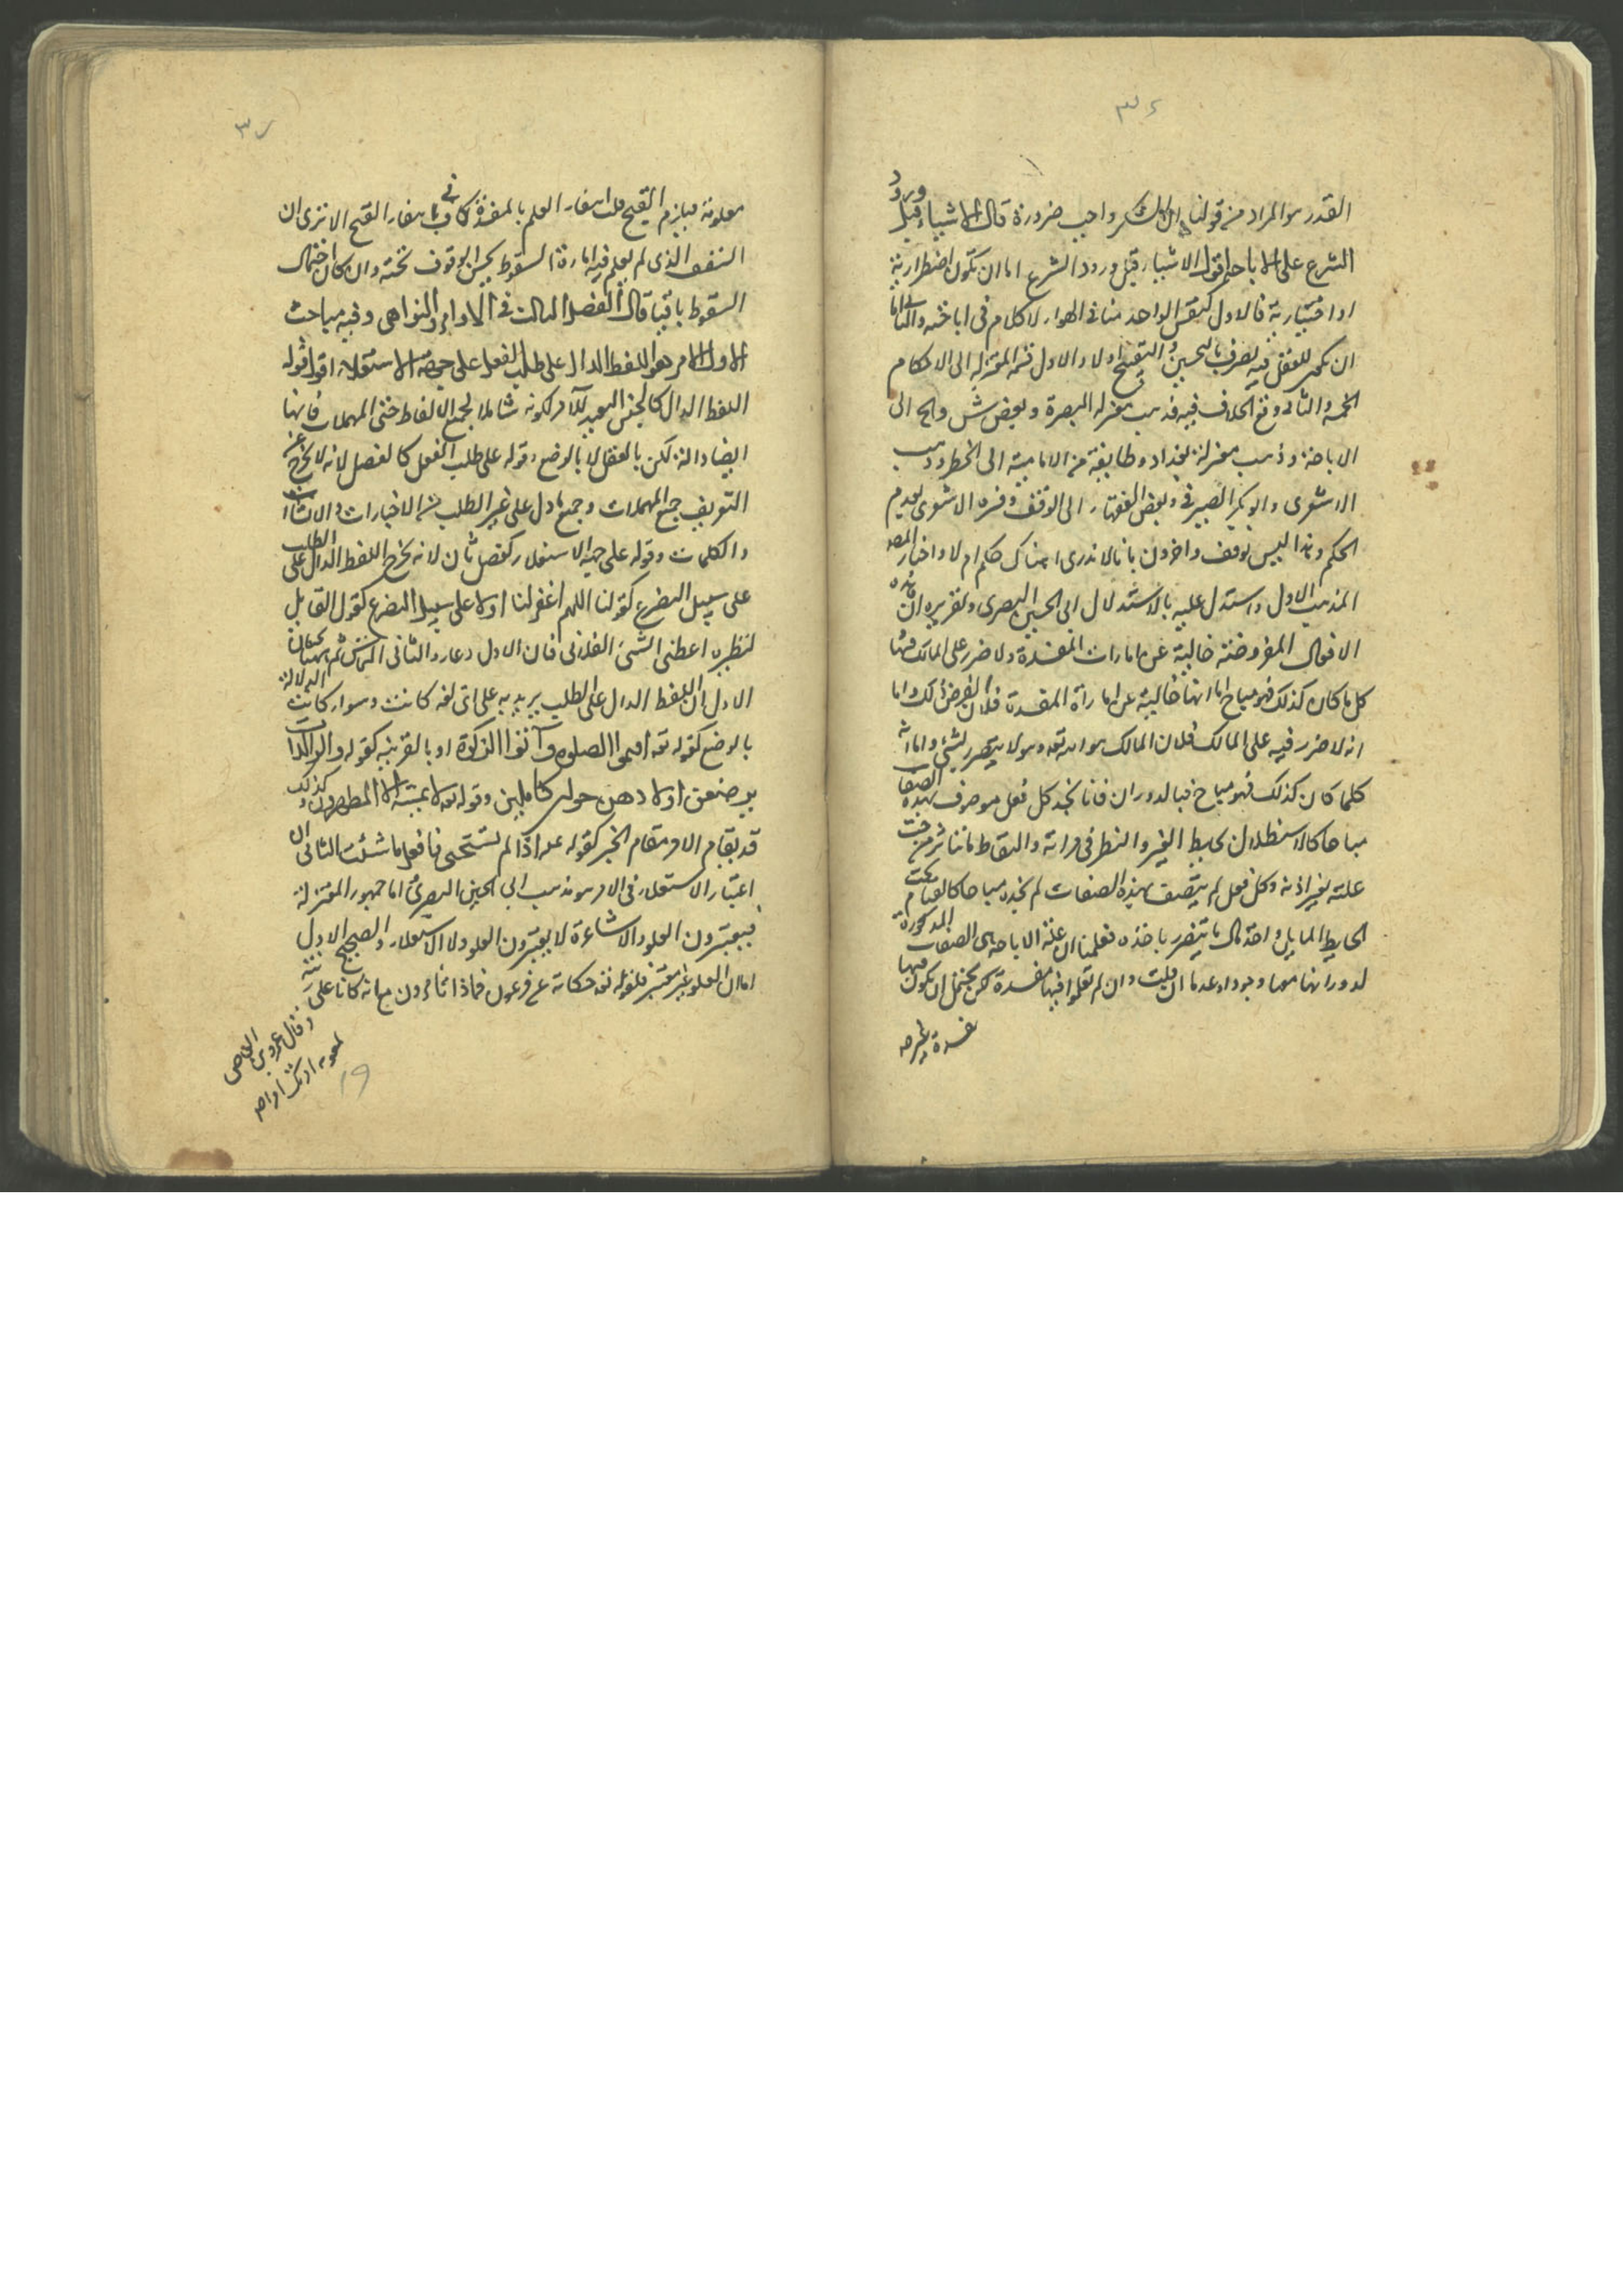 ٣٦
القدر هو المراد من قولنا ان الشكر واجب ضرورة قال الاشياء قبل ورود
الشرع على الاباحة اقول الاشياء قبل ورود الشرع اما ان تكون اضطرارية
او اختيارية فالاول كتنفس الواحد منا فى الهواء لا كلام فى اباحته والثانى اما
ان يكون للعقل فيه تصرف بالتحسين و التقبيح اولا والاول قسمه المعتزله الى الاحكام
الخمسة والثانى وقع الخلاف فيه فذهب معتزله البصرة وبعض الى
الاباحة وذهب معتزلة بغداد وطايفة من الامامية الى الحظر وذهب
الاشعرى وابو بكر الصيرفى وبعض الفقهاء الى الوقف وفسره الاشعرى بعدم
الحكم وهذا ليس بوقف واخرون بانا لا ندرى هناك حكم ام لا واختار المص
المذهب الاول واستدل عليه بالاستدلال ابى الحسين البصرى وتقريره ان هذه
الافعال المفروضة خالية عن امارات المفسدة ولا ضرر على المالك فيها
كل ما كان كذلك فهو مباح اما انها خالية عن امارة المفسدة فلان الفرض ذلك واما
انه لا ضرر فيه على المالك فلان المالك هو الله تعه وهو لا يتضرر بشئ واما انه
كلما كان كذلك فهو مباح فبالدوران فانا نجد كل فعل موصوف بهذه الصفات
مباحا كالاستظلال بحايط الغير والنظر فى مرآته والتقاط ما تناثر من حب
غلته بغير اذنه وكل فعل لم يتصف بهذه الصفات لم نجده مباحا كالقيام تحت
الحايط المايل واخذ مال ما يتضرر باخذه فعلمنا ان علة الاباحة هى الصفات المذكورة
لدورانها معها وجودا وعدما ان قلت وان لم تعلموا فيها مفسدة لكن يحتمل ان تكون فيها
مفسدة غير
٣٧
معلومة فيلزم القبح قلت انتفاء العلم بالمفسدة كاف فى انتفاء القبح الا ترى ان
السقف الذى لم يعلم فيه امارة السقوط يحسن الوقوف تحته وان كان احتمال
السقوط باقيا قال الفصل الثالث فى الاوامر والنواهى وفيه مباحث
الاول الامر هو اللفظ الدال على طلب الفعل على جهة الاستعلاء اقول قوله
اللفظ الدال كالجنس البعيد للامر لكونه شاملا لجميع الالفاظ حتى المهملات فانها
ايضا دالة لكن بالعقل لا بالوضع وقوله على طلب الفعل كالفصل لانه يخرج عن
التعريف جميع المهملات وجميع ما دل على غير الطلب من الاخبارات والانشاآت
والكلمات وقوله على جهة الاستعلاء كفصل ثان لانه يخرج اللفظ الدال على الطلب
على سبيل التضرع كقولنا اللهم اغفر لنا اولا على سبيل التضرع كقول القايل
لنظيره اعطنى الشئ الفلانى فان الاول دعاء والثانى التماس ثم ههنا بحثان
الاول ان اللفظ الدال على الطلب يريد به على اى لغه كانت وسواء كانت الدلالة
بالوضع كقوله تعه اقيموا الصلوة وآتوا الزكوة او بالقرينه كقوله والوالدات
يرضعن اولادهن حولين كاملين وقوله تعه لا يمسه الا المطهرون وكذلك
قد يقام الامر مقام الخبر كقوله عه اذا لم تستحى فافعل ما شئت الثانى ان
اعتبار الاستعلاء فى الامر هو مذهب ابى الحسين البصرى اما جمهور المعتزلة
فيعتبرون العلو والاشاعرة لا يعتبرون العلو ولا الاستعلاء والصحيح الاول
اما ان العلو غير معتبر فلقوله تعه حكاية عن فرعون فماذا تأمرون مع انه كان اعلى رتبة
وقال عمرو بن العاص
لمعوية امرتك امرا
١٩